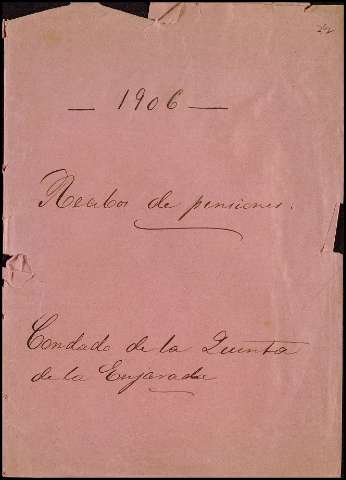 22
— 1906 —
Recibos de pensiones.
Condado de la Quinta
de la Enjarada